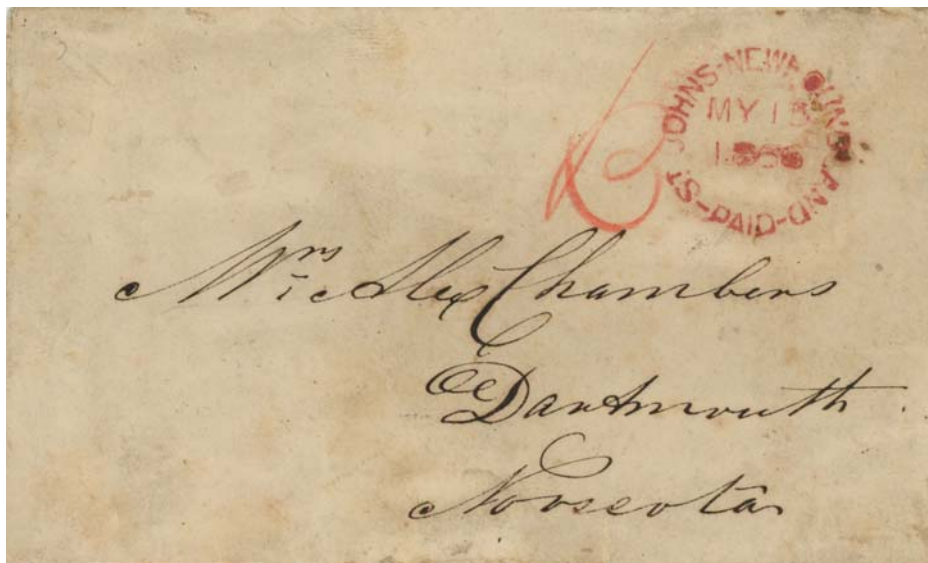 ST JOHNS-NEWFOUNDLAND
MY 1
-PAID-
6
Mrs Alex Chambers
Dartmouth
Novscota